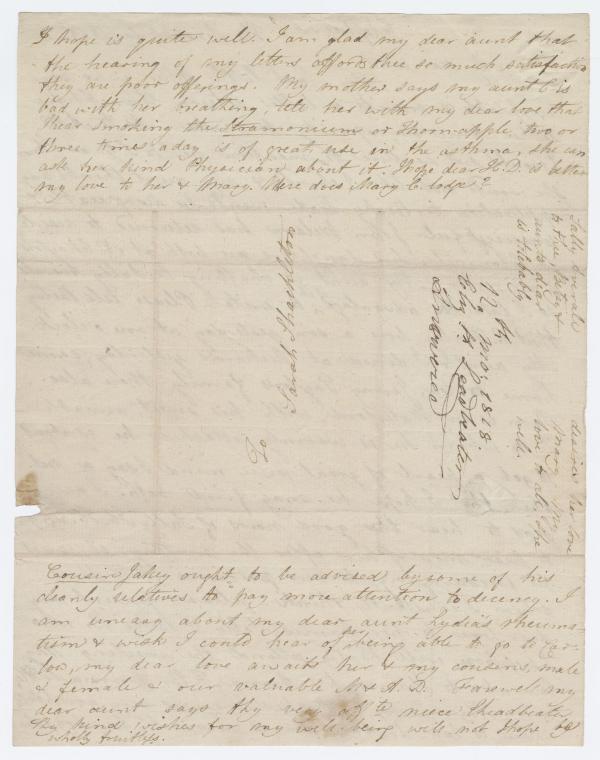 I hope is quite well. I am glad my dear aunt that
the hearing of my letters affords thee so much satisfaction
they are poor offerings. My mother says my aunt C is
bad with her breathing, tell her with my dear love that
I hear smoking the Stramonium or Thorn-apple, two or
three times a day is of great use in the asthma, she can
ask her kind Physician about it. I hope dear H.D. is better
my love to her & Mary. Where does Mary C. lodge?
To
Sarah Shackleton
12th
Mo: 1818
Leadbeater
Answered
Sally
to thee,
aunts dear
desires her love
Mary
love to all the
well
Cousin Jakey ought to be advised by some of his
cleanly relatives to pay more attention to decency. I
am uneasy about my dear aunt Lydia's rheuma-
tism & wish I could hear of her being able to go to Car-
low, my dear love awaits her & my cousins, male
& female & our valuable M & A.D. Farewell my
dear aunt says thy very affte niece Leadbeater
Thy kind wishes for my well-being will not I hope be
wholly fruitless.